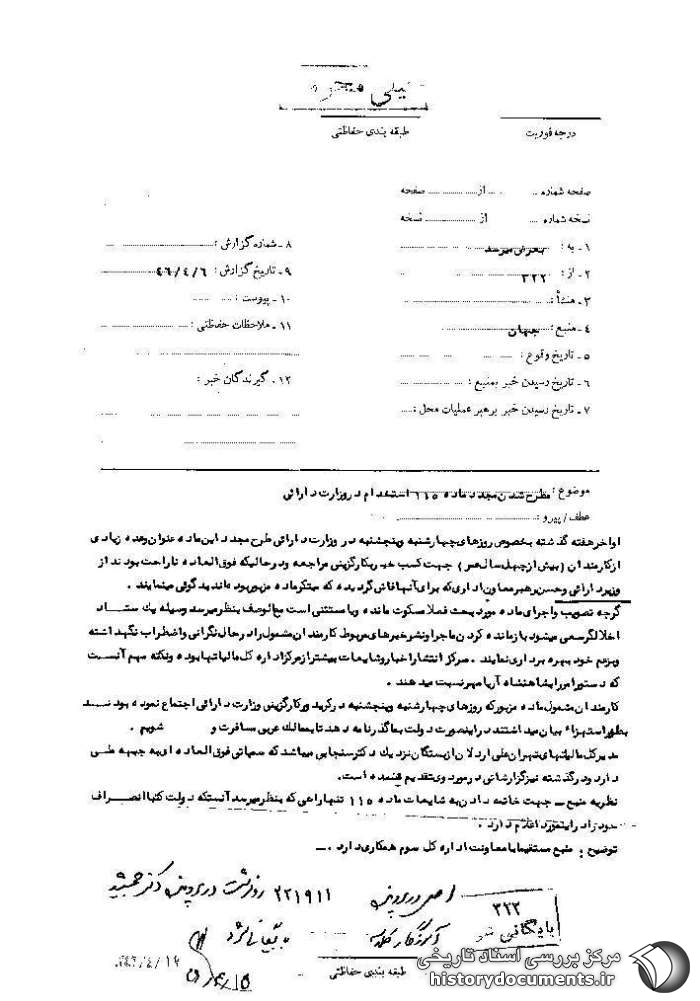 خیلی محرمانه
درجه فوریت
طبقه بندی حفاظتی
صفحه شماره ... از ... صفحه
نسخه شماره ... از ... نسخه
۱ـ به : بعرض میرسد
۲ـ از : ۳۲۲
۳ـ منشأ :
۴ـ منبع : جهان
۵ـ تاریخ وقوع :
۶ـ تاریخ رسیدن خبر بمنبع :
۷ـ تاریخ رسیدن خبر برهبر عملیات محل :
۸ـ شماره گزارش :
۹ـ تاریخ گزارش : ۴۶/۴/۶
۱۰ـ پیوست :
۱۱ـ ملاحظات حفاظتی :
۱۲ـ گیرندگان خبر :
موضوع : مطرح شدن مجدد ماده ۱۱۵ استخدام در وزارت دارائی
عطف / پیرو :
اواخر هفته گذشته بخصوص روزهای چهارشنبه و پنجشنبه در وزارت دارائی طرح مجدد این ماده عنوان و عده زیادی
از کارمندان (بیش از چهل سال عمر) جهت کسب خبر بکارگزینی مراجعه و در حالیکه فوق العاده ناراحت بودند از
وزیر دارائی و حسن رهبر معاون اداری که برای آنها فاش گردیده که مبتکر ماده مزبور بوده اند بدگوئی مینمایند .
گرچه تصویب و اجرای ماده مورد بحث فعلا مسکوت مانده و یا منتفی است مع الوصف بنظر میرسد وسیله یک ستاد
اخلالگر سعی میشود با زنده کردن ماجرا و نشر خبرهای مربوط کارمندان مشمول را در حال نگرانی و اضطراب نگهداشته
و بزعم خود بهره برداری نمایند . مرکز انتشار اخبار و شایعات بیشتر از مرکز اداره کل مالیاتها بوده و نکته مهم آنست
که دستور امر را بشاهنشاه آریامهر نسبت میدهند .
کارمندان مشمول ماده مزبور که روزهای چهارشنبه و پنجشنبه در کریدور کارگزینی وزارت دارائی اجتماع نموده بودند
بطور استهزاء بیان میداشتند در اینصورت دولت بما گذرنامه دهد تا بممالک عربی مسافرت و شویم .
مدیرکل مالیاتهای تهران علی اردلان از بستگان نزدیک دکتر سنجابی میباشد که سمپاتی فوق العاده ای به جبهه ملی
دارد و در گذشته نیز گزارشاتی در مورد وی تقدیم شده است .
نظریه منبع ـ جهت خاتمه دادن به شایعات ماده ۱۱۵ تنها راهی که بنظر میرسد آنستکه دولت کتبا انصراف
خود را در اینمورد اعلام دارد .
توضیح : منبع مستقیما با معاونت اداره کل سوم همکاری دارد .
اصل در پرونده ۲۲۱۹۱۱ رونوشت در پرونده دکتر جمشید
آموزگار
۳۲۲
بایگانی شود
طبقه بندی حفاظتی
مرکز بررسی اسناد تاریخی
historydocuments.ir